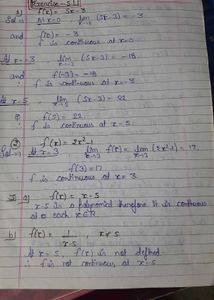 Exercise - 5.1
1) f(x) = 5x-3
Solⁿ At x=0 lim x→0 (5x-3) = -3
and f(0) = -3
∴ f is continuous at x=0
At x=-3 lim x→-3 (5x-3) = -18
and f(-3) = -18
∴ f is continuous at x=-3
At x=5 lim x→5 (5x-3) = 22
f(5) = 22
∴ f is continuous at x=5
② f(x) = 2x²-1
Solⁿ At x=3 lim x→3 f(x) = lim x→3 (2x²-1) = 17
f(3) = 17
f is continuous at x=3
a) f(x) = x-5
x-5 is a polynomial therefore it is continuous
at each x∈R
b) f(x) = 1/(x-5), x≠5
At x=5, f(x) is not defined
∴ f is not continuous at x=5